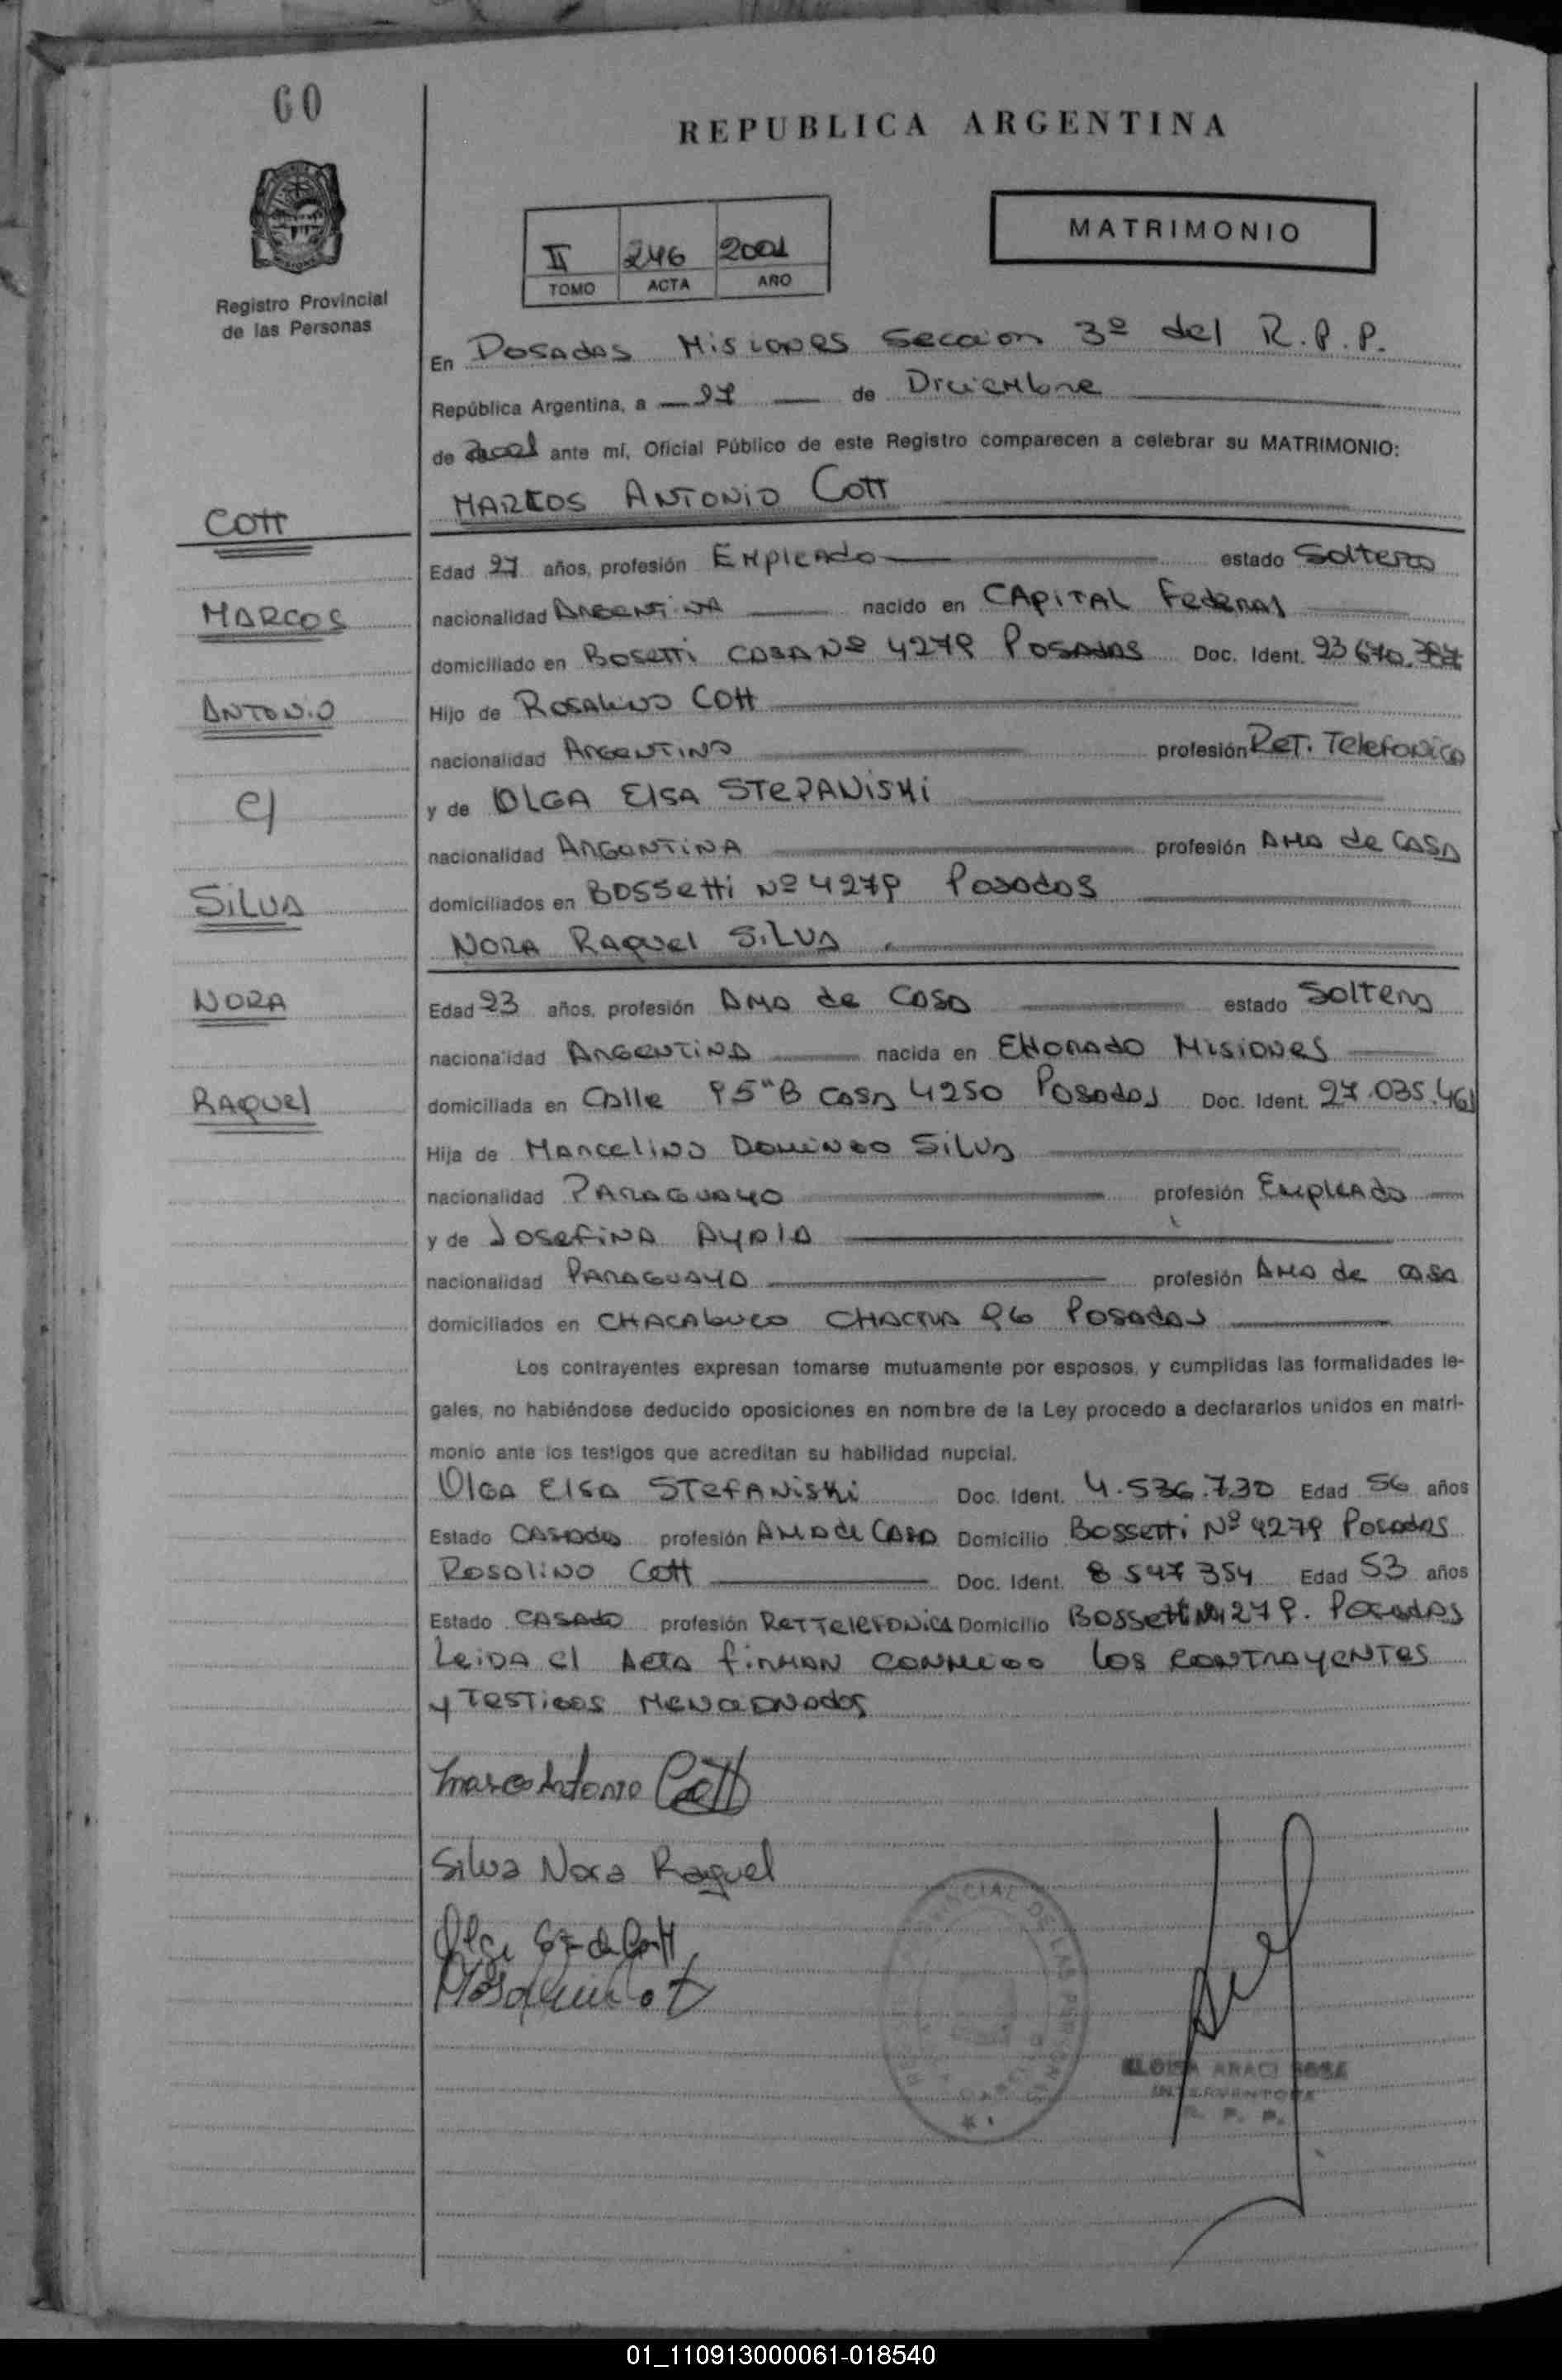 60
REPUBLICA ARGENTINA
MATRIMONIO
II 246 2001
TOMO ACTA AÑO
Registro Provincial
de las Personas
En Posadas Misiones Seccion 3º del R.P.P.
República Argentina, a 27 de Diciembre
de 2001 ante mí, Oficial Público de este Registro comparecen a celebrar su MATRIMONIO:
MARCOS ANTONIO Cott
COTT
MARCOS
ANTONIO
C/
SILVA
NORA
RAQUEL
Edad 27 años, profesión Empleado estado Soltero
nacionalidad Argentina nacido en CAPITAL Federal
domiciliado en Bosetti CASA Nº 4279 Posadas Doc. Ident. 23 670.787
Hijo de Rosalino Cott
nacionalidad Argentino profesión Ret. Telefonico
y de OLGA Elsa STEPANiski
nacionalidad Argentina profesión Ama de Casa
domiciliados en Bossetti Nº 4279 Posadas
NORA Raquel Silva
Edad 23 años, profesión Ama de Casa estado Soltera
nacionalidad Argentina nacida en Eldorado Misiones
domiciliada en Calle 95 "B Casa 4250 Posadas Doc. Ident. 27.035.461
Hija de Marcelino Domingo Silva
nacionalidad Paraguayo profesión Empleado
y de Josefina Ayala
nacionalidad Paraguaya profesión Ama de casa
domiciliados en Chacabuco Chacra 96 Posadas
Los contrayentes expresan tomarse mutuamente por esposos, y cumplidas las formalidades le-
gales, no habiéndose deducido oposiciones en nombre de la Ley procedo a declararlos unidos en matri-
monio ante los testigos que acreditan su habilidad nupcial.
Olga Elsa Stefaniski Doc. Ident. 4.536.730 Edad 56 años
Estado Casada profesión Ama de Casa Domicilio Bossetti Nº 4279 Posadas
Rosalino Cott Doc. Ident. 8 547 354 Edad 53 años
Estado Casado profesión Ret Telefonica Domicilio Bossetti Nº 4279. Posadas
Leida el Acta firman conmigo los contrayentes
y Testigos Mencionados
Marcos Antonio Cott
Silva Nora Raquel
ELOISA ARACI SOSA
INTERVENTORA
R. P. P.
01_110913000061-018540